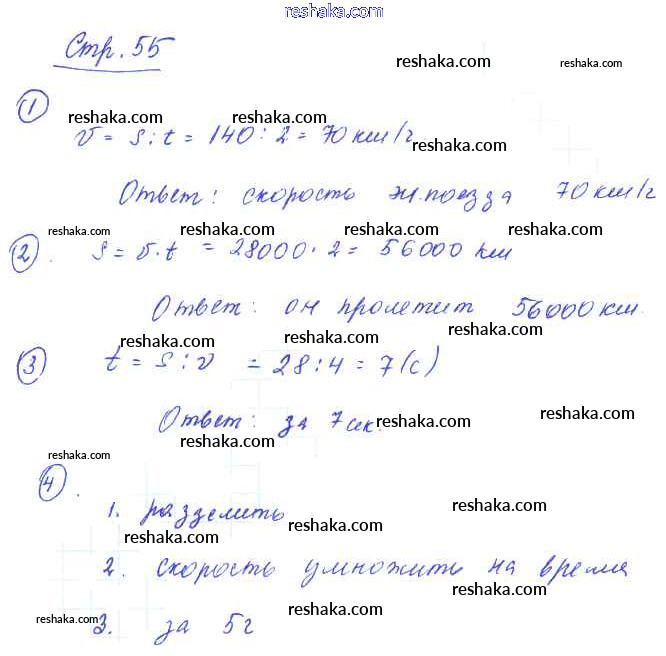 www.reshaka.com
Стр. 55
reshaka.com
1
reshaka.com reshaka.com
v = s : t = 140 : 2 = 70 км/ч
reshaka.com
Ответ: скорость ж. поезда 70 км/ч
reshaka.com reshaka.com reshaka.com reshaka.com
2. s = v · t = 28000 · 2 = 56000 км
Ответ: он пролетит 56000 км.
reshaka.com reshaka.com reshaka.com
3 t = s : v = 28 : 4 = 7 (с)
Ответ: за 7 сек.
reshaka.com
reshaka.com
reshaka.com
4.
1. разделить
reshaka.com
reshaka.com
reshaka.com
2. скорость умножить на время
reshaka.com
reshaka.com
3. за 5г
reshaka.com